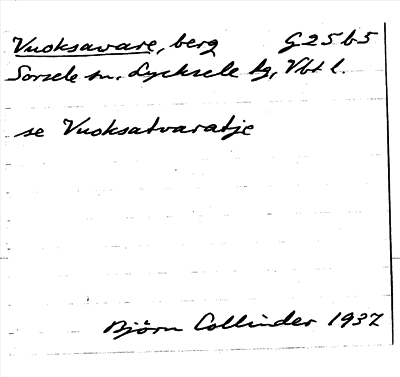 Vuoksavare, berg G25b5
Sorsele sn. Lycksele lg, Vbt l.
se Vuoksatvaratje
Björn Collinder 1937